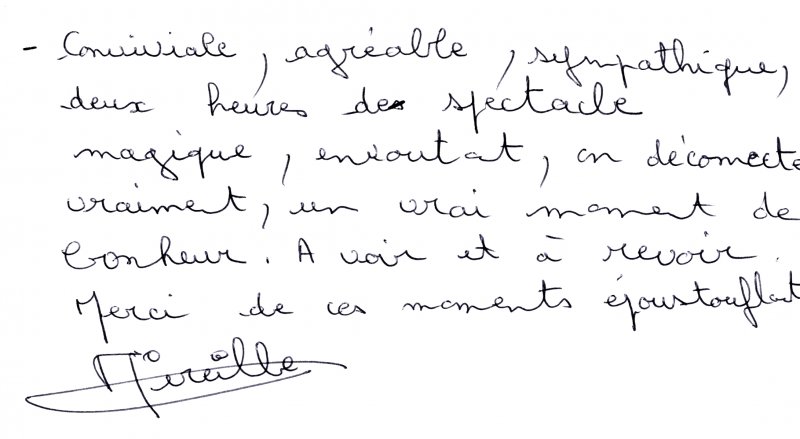 - Conviviale, agréable, sympathique,
deux heures de spectacle
magique, envoutat, on décomecte
vraiment, un vrai moment de
bonheur. A voir et à revoir.
Merci de ces moments époustouflat
Mireille